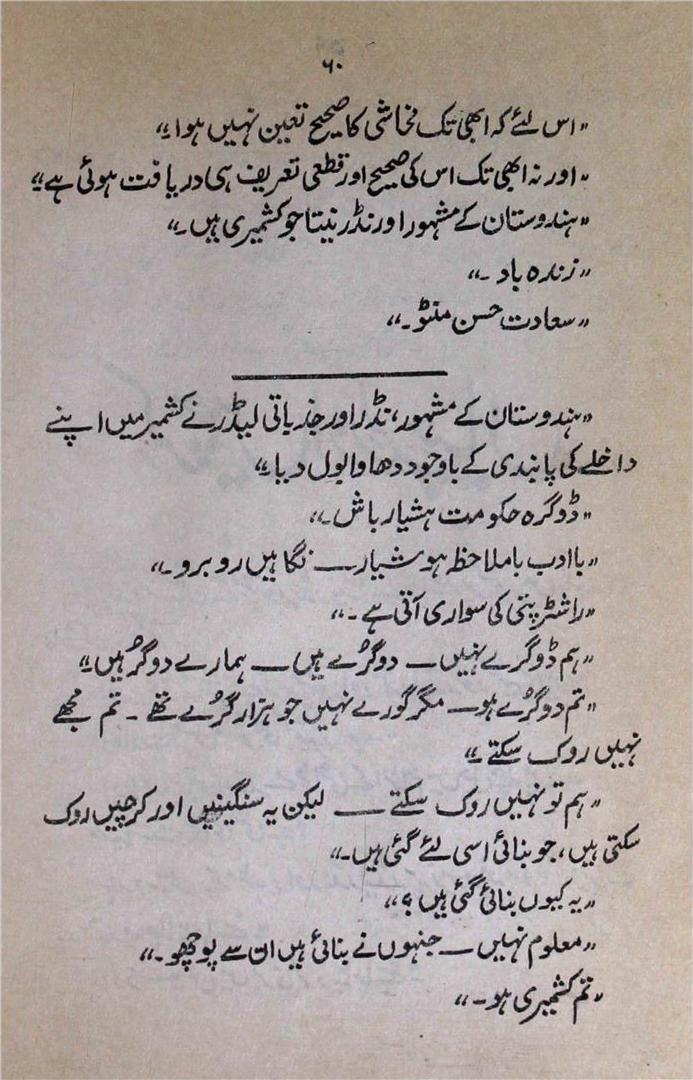 ۶۰
"اس لئے کہ ابھی تک فحاشی کا صحیح تعین نہیں ہوا۔"
"اور نہ ابھی تک اس کی صحیح اور قطعی تعریف ہی دریافت ہوئی ہے۔"
"ہندوستان کے مشہور اور نڈر نیتا جو کشمیری ہیں۔"
"زندہ باد۔"
"سعادت حسن منٹو۔"
"ہندوستان کے مشہور، نڈر اور جذباتی لیڈر نے کشمیر میں اپنے
داخلے کی پابندی کے باوجود دھاوا بول دیا۔"
"ڈوگرہ حکومت ہشیار باش۔"
"باادب باملاحظہ ہوشیار — نگاہیں روبرو۔"
"راشٹرپتی کی سواری آتی ہے۔"
"ہم ڈوگرے نہیں — دوگرُے ہیں — ہمارے دو گُر ہیں۔"
"تم دوگرُے ہو — مگر گورے نہیں جو ہزار گرُے تھے۔ تم مجھے
نہیں روک سکتے۔"
"ہم تو نہیں روک سکتے — لیکن یہ سنگینیں اور کرچیں روک
سکتی ہیں، جو بنائی اسی لئے گئی ہیں۔"
"یہ کیوں بنائی گئی ہیں؟"
"معلوم نہیں — جنہوں نے بنائی ہیں ان سے پوچھو۔"
"تم کشمیری ہو۔"